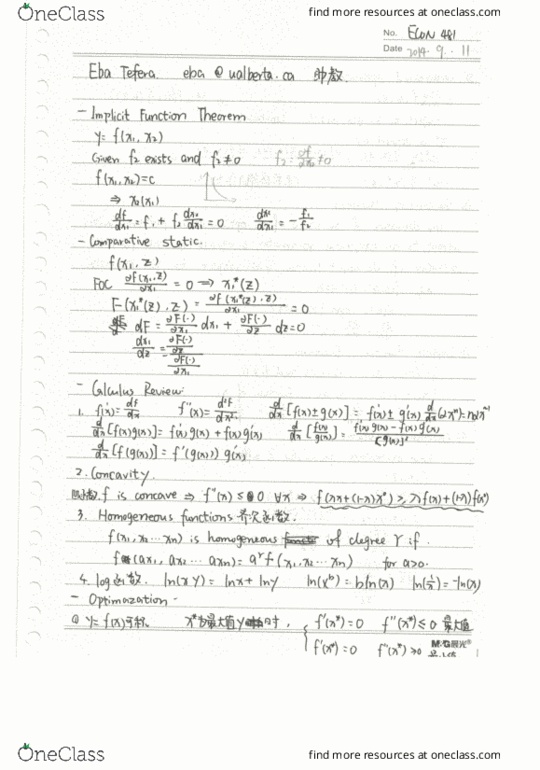 OneClass find more resources at oneclass.com
No. ECON 481
Date 2014. 9. 11
Eba Tefera. eba @ ualberta.ca 助教
- Implicit Function Theorem
y = f(x₁, x₂)
Given f₂ exists and f₂ ≠ 0 f₂ = ∂f/∂x₂ ≠ 0
f(x₁, x₂) = c
⇒ x₂(x₁)
df/dx₁ = f₁ + f₂ dx₂/dx₁ = 0 dx₂/dx₁ = - f₁/f₂
- Comparative static.
f(x₁, z)
FOC ∂f(x₁, z)/∂x₁ = 0 ⇒ x₁*(z)
F(x₁*(z), z) = ∂f(x₁*(z), z)/∂x₁ = 0
dF = ∂F(·)/∂x₁ dx₁ + ∂F(·)/∂z dz = 0
dx₁/dz = - ∂F(·)/∂z / ∂F(·)/∂x₁
- Calculus Review:
1. f'(x) = df/dx f''(x) = d²f/dx² d/dx [f(x) ± g(x)] = f'(x) ± g'(x)
d/dx [f(x)g(x)] = f'(x) g(x) + f(x) g'(x) d/dx [f(x)/g(x)] = f'(x) g(x) - f(x) g'(x) / [g(x)]²
d/dx [f(g(x))] = f'(g(x)) g'(x)
2. Concavity.
f is concave ⇒ f''(x) ≤ 0 ∀x ⇒
3. Homogeneous functions 齐次函数.
f(x₁, x₂ ... xₙ) is homogeneous of degree r if
f(ax₁, ax₂ ... axₙ) = aʳ f(x₁, x₂ ... xₙ) for a>0.
4. log函数. ln(xy) = lnx + lny ln(xᵇ) = b ln(x) ln(1/x) = -ln(x)
- Optimization -
① y = f(x) x*为最大值 时, f'(x*) = 0 f''(x*) ≤ 0 最大值
f'(x*) = 0 f''(x*) ≥ 0
M&G 晨光®
OneClass find more resources at oneclass.com